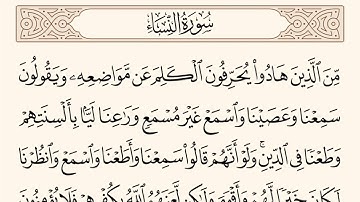 سُورَةُ النِّسَاءِ
مِّنَ ٱلَّذِينَ هَادُوا۟ يُحَرِّفُونَ ٱلْكَلِمَ عَن مَّوَاضِعِهِۦ وَيَقُولُونَ
سَمِعْنَا وَعَصَيْنَا وَٱسْمَعْ غَيْرَ مُسْمَعٍ وَرَٰعِنَا لَيًّۢا بِأَلْسِنَتِهِمْ
وَطَعْنًا فِى ٱلدِّينِ ۚ وَلَوْ أَنَّهُمْ قَالُوا۟ سَمِعْنَا وَأَطَعْنَا وَٱسْمَعْ وَٱنظُرْنَا
لَكَانَ خَيْرًا لَّهُمْ وَأَقْوَمَ وَلَٰكِن لَّعَنَهُمُ ٱللَّهُ بِكُفْرِهِمْ فَلَا يُؤْمِنُونَ